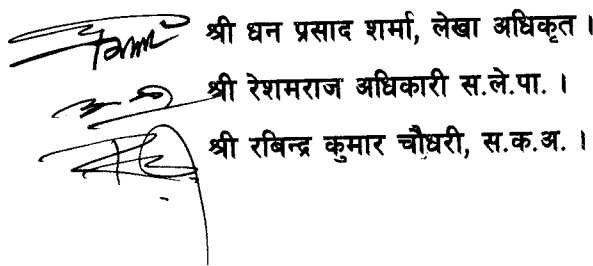 श्री धन प्रसाद शर्मा, लेखा अधिकृत ।
श्री रेशमराज अधिकारी स.ले.पा. ।
श्री रबिन्द्र कुमार चौधरी, स.क.अ. ।